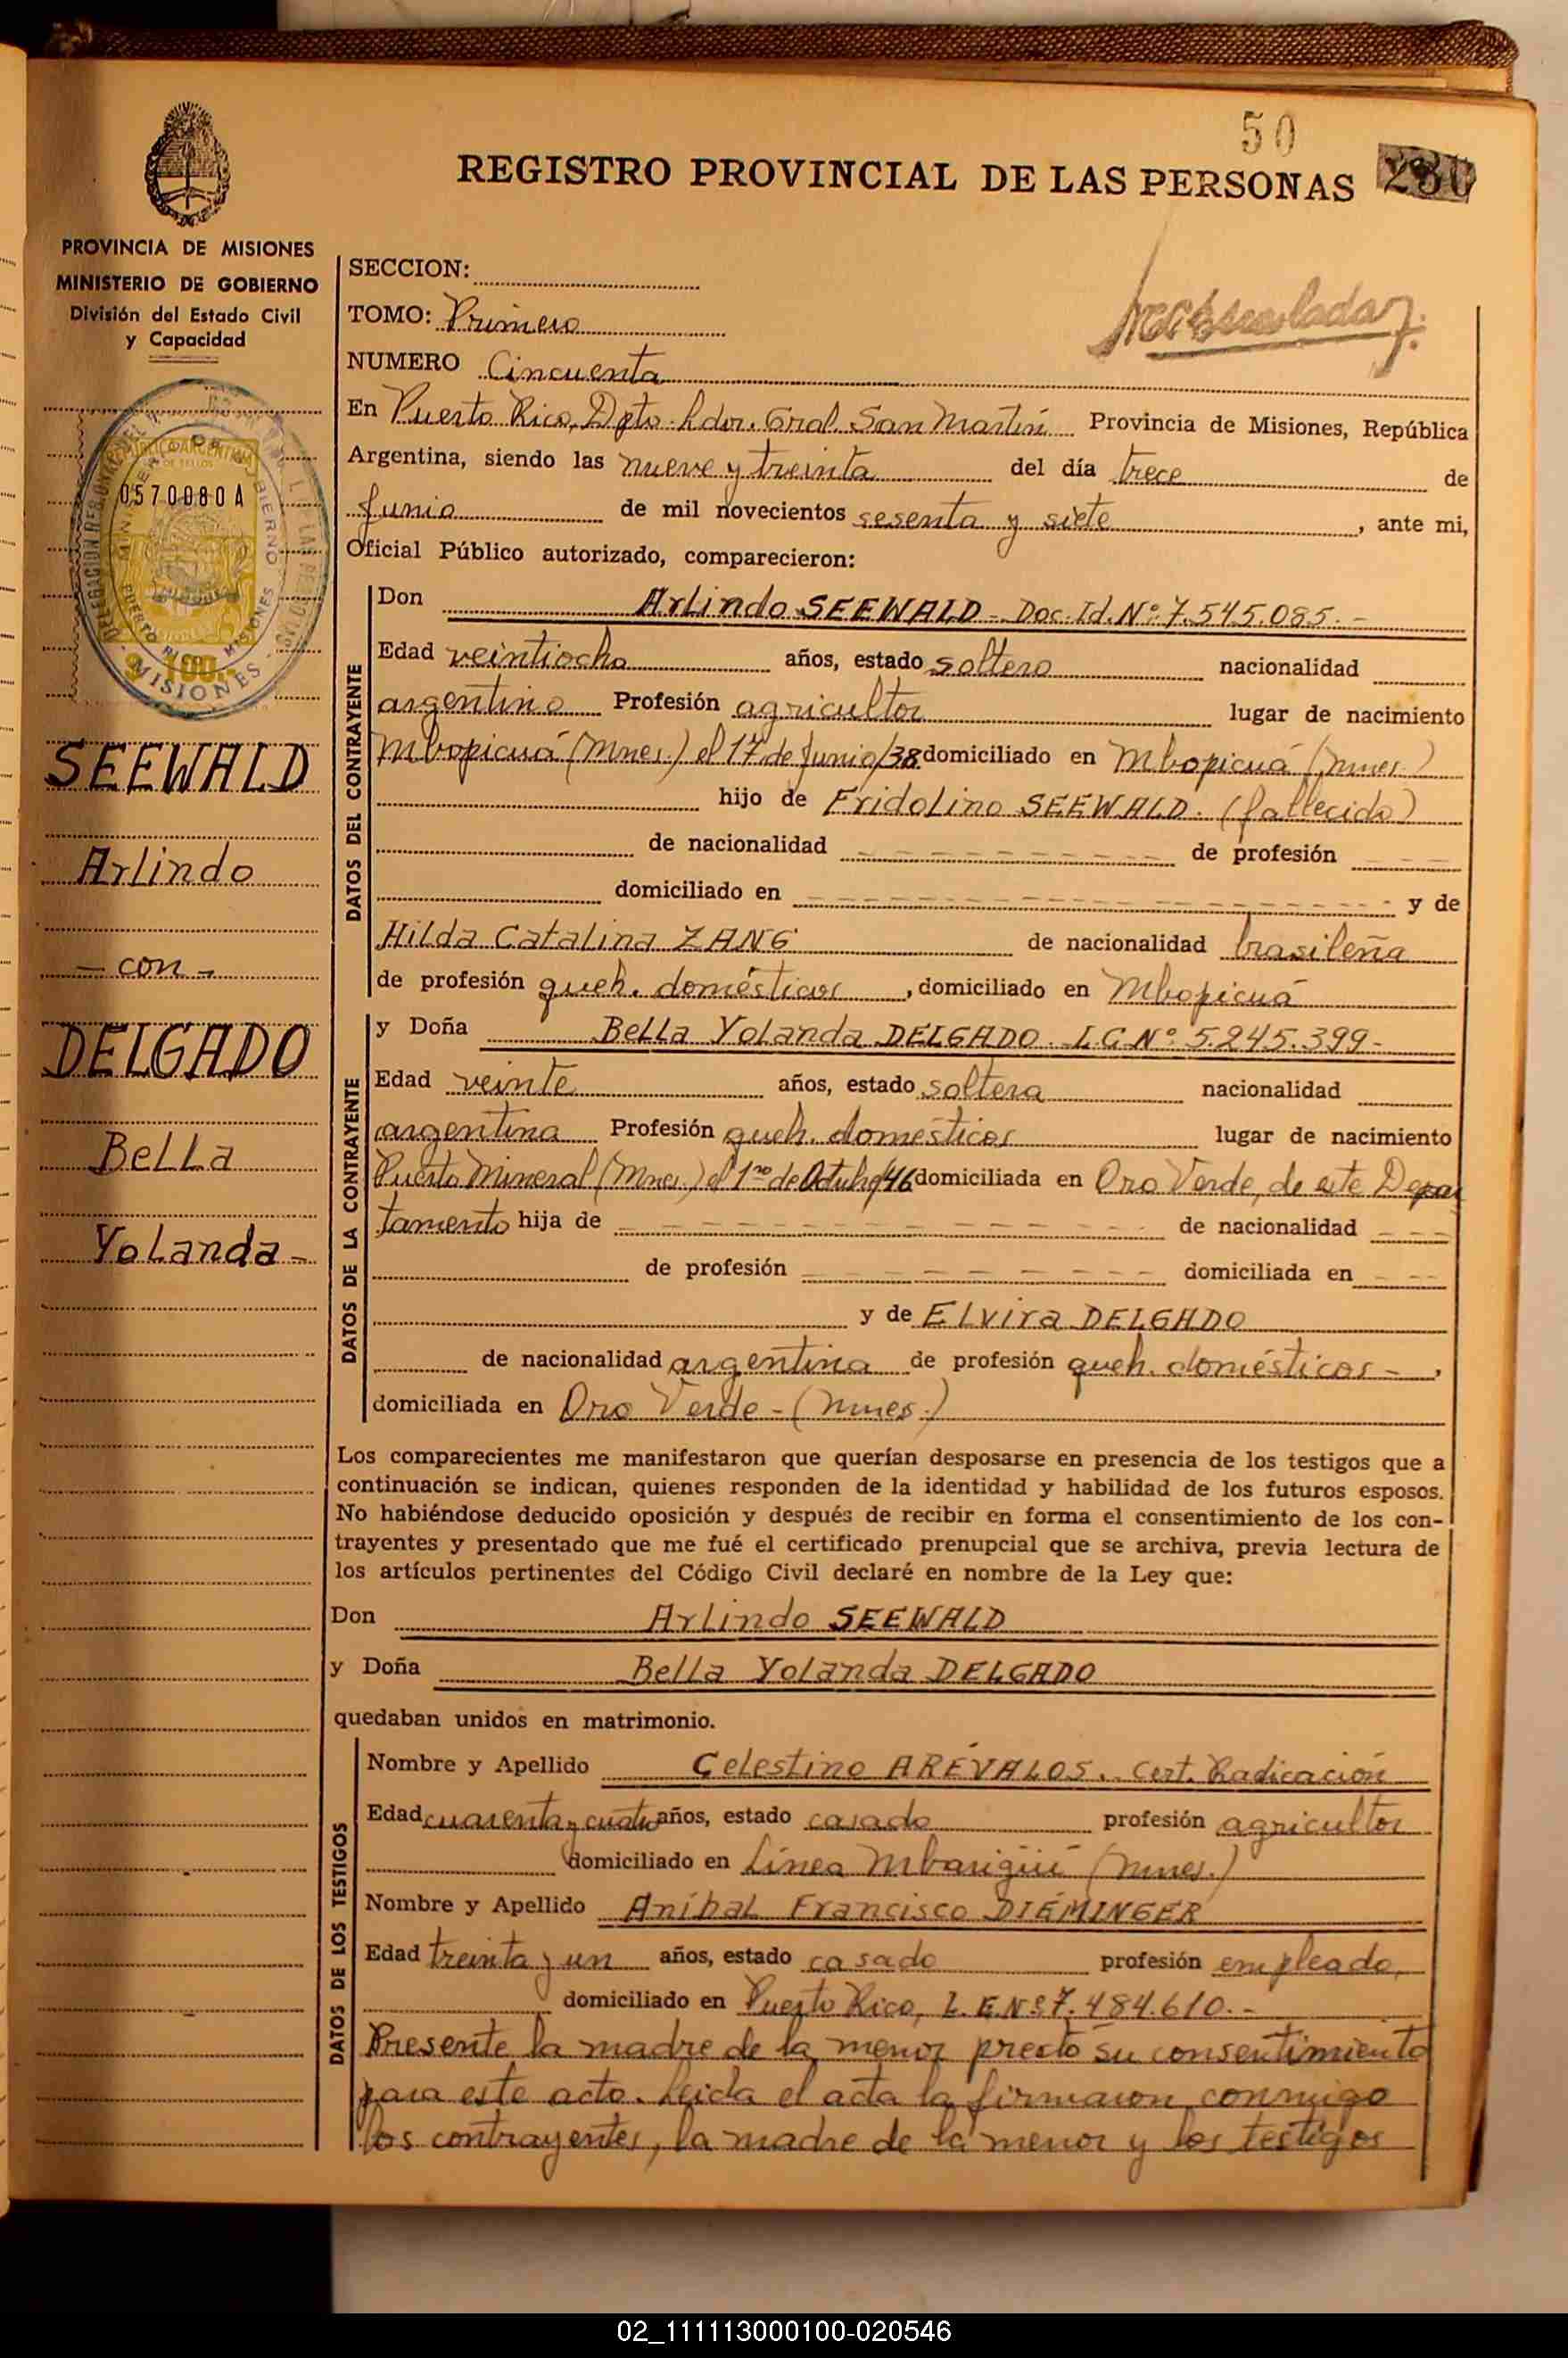 50
REGISTRO PROVINCIAL DE LAS PERSONAS
PROVINCIA DE MISIONES
MINISTERIO DE GOBIERNO
División del Estado Civil
y Capacidad
0570080A
PUERTO RICO MISIONES
MISIONES
SEEWALD
Arlindo
- con -
DELGADO
Bella
Yolanda -
SECCION:
TOMO: Primero
NUMERO Cincuenta
En Puerto Rico, Dpto. Ldor. Gral. San Martín Provincia de Misiones, República
Argentina, siendo las nueve y treinta del día trece de
Junio de mil novecientos sesenta y siete, ante mi,
Oficial Público autorizado, comparecieron:
DATOS DEL CONTRAYENTE
Don Arlindo SEEWALD - Doc. Id. Nº 7.545.085. -
Edad veintiocho años, estado soltero nacionalidad
argentino Profesión agricultor lugar de nacimiento
Mbopicuá (Mnes.) el 17 de Junio/38 domiciliado en Mbopicuá (Mnes.)
hijo de Fridolino SEEWALD. (fallecido)
de nacionalidad - - - de profesión - - -
domiciliado en - - - y de
Hilda Catalina ZANG de nacionalidad brasileña
de profesión queh. domésticos, domiciliado en Mbopicuá
DATOS DE LA CONTRAYENTE
y Doña Bella Yolanda DELGADO - L.C. Nº 5.245.399 -
Edad veinte años, estado soltera nacionalidad
argentina Profesión queh. domésticos lugar de nacimiento
Puerto Mineral (Mnes.) el 1ro de Octubre/46 domiciliada en Oro Verde, de este Depar
tamento hija de - - - de nacionalidad - - -
de profesión - - - domiciliada en - - -
y de Elvira DELGADO
de nacionalidad argentina de profesión queh. domésticos -,
domiciliada en Oro Verde - (Mnes.)
Los comparecientes me manifestaron que querían desposarse en presencia de los testigos que a
continuación se indican, quienes responden de la identidad y habilidad de los futuros esposos.
No habiéndose deducido oposición y después de recibir en forma el consentimiento de los con-
trayentes y presentado que me fué el certificado prenupcial que se archiva, previa lectura de
los artículos pertinentes del Código Civil declaré en nombre de la Ley que:
Don Arlindo SEEWALD
y Doña Bella Yolanda DELGADO
quedaban unidos en matrimonio.
DATOS DE LOS TESTIGOS
Nombre y Apellido Celestino ARÉVALOS. Cert. Radicación
Edad cuarenta y cuatro años, estado casado profesión agricultor
domiciliado en Línea Mbarigüí (Mnes.)
Nombre y Apellido Aníbal Francisco DIEMINGER
Edad treinta y un años, estado casado profesión empleado,
domiciliado en Puerto Rico, L.E. Nº 7.484.610. -
Presente la madre de la menor prestó su consentimiento
para este acto. Leida el acta la firmaron conmigo
los contrayentes, la madre de la menor y los testigos
02_111113000100-020546